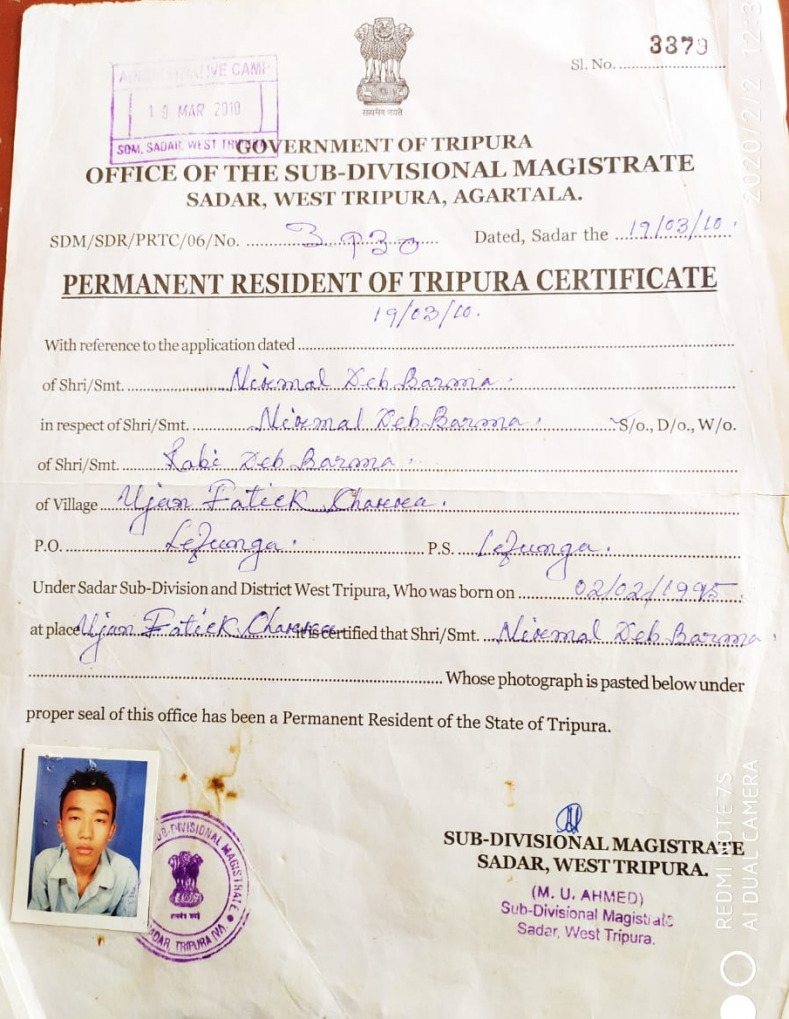 3379
Sl. No. ....................
ADMINISTRATIVE CAMP
19 MAR 2010
SDM, SADAR, WEST TRIPURA
सत्यमेव जयते
GOVERNMENT OF TRIPURA
OFFICE OF THE SUB-DIVISIONAL MAGISTRATE
SADAR, WEST TRIPURA, AGARTALA.
SDM/SDR/PRTC/06/No. 3930 Dated, Sadar the 19/03/10.
PERMANENT RESIDENT OF TRIPURA CERTIFICATE
19/03/10.
With reference to the application dated
of Shri/Smt. Nirmal Deb Barma.
in respect of Shri/Smt. Nirmal Deb Barma. S/o., D/o., W/o.
of Shri/Smt. Rabi Deb Barma.
of Village Ujan Fatick Charra.
P.O. Lefunga. P.S. Lefunga.
Under Sadar Sub-Division and District West Tripura, Who was born on 02/02/1995.
at place Ujan Fatick Charra it is certified that Shri/Smt. Nirmal Deb Barma.
Whose photograph is pasted below under
proper seal of this office has been a Permanent Resident of the State of Tripura.
SUB-DIVISIONAL MAGISTRATE
SADAR, WEST TRIPURA.
(M. U. AHMED)
Sub-Divisional Magistrate
Sadar, West Tripura.
SUB-DIVISIONAL MAGISTRATE
SADAR, TRIPURA (W).
REDMI NOTE 7S
AI DUAL CAMERA
2020/2/2 12:3